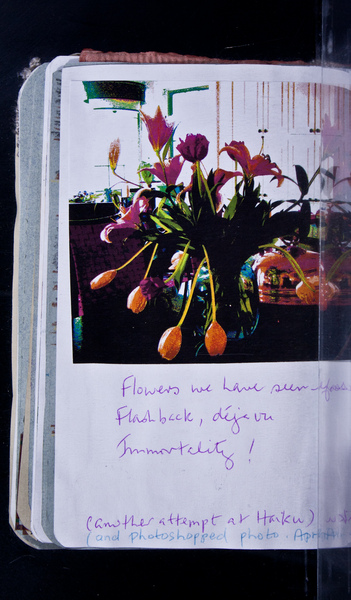 Flowers we have seen
Flashback, déja vu
Immortality !
(another attempt at Haiku)
(and photoshopped photo.